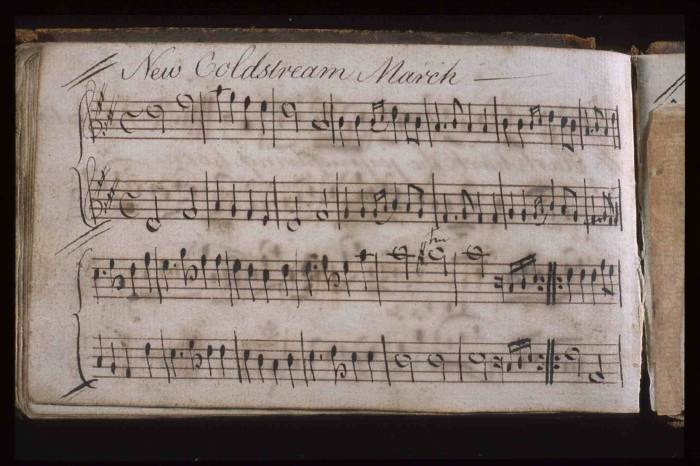 New Coldstream March
tr